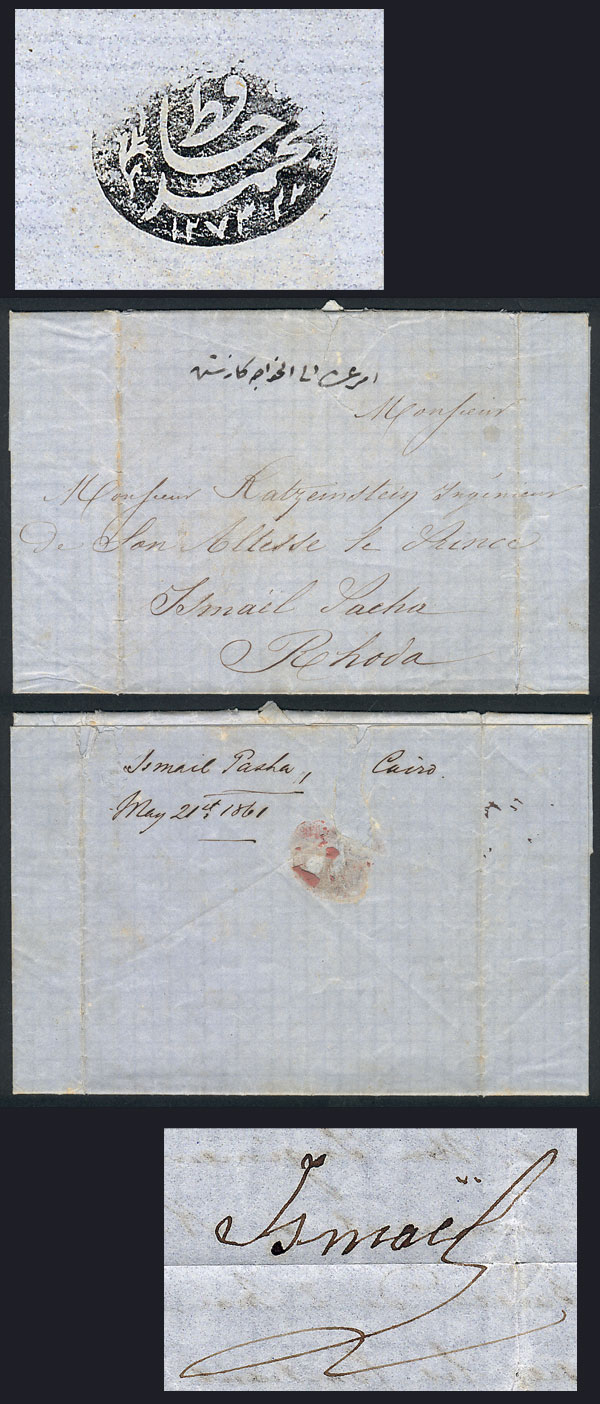 حافظ
محمد
١٢٧٣
Monsieur
Monsieur Katzeinstein Ingénieur
de Son Altesse le Prince
Ismaël Pacha
Rhoda
Ismail Pasha, Cairo.
May 21st 1861
Ismaël